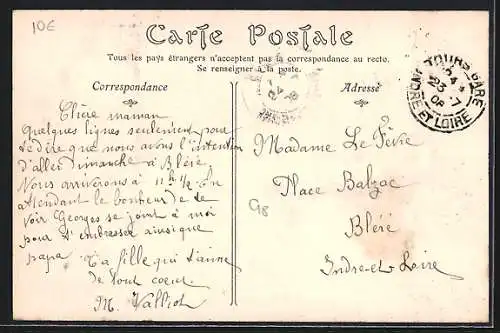 10€
Carte Postale
Tous les pays étrangers n'acceptent pas la correspondance au recto.
Se renseigner à la poste.
Correspondance
Adresse
TOURS GARE
23 -7
08
INDRE ET LOIRE
Chère maman
quelques lignes seulement pour
te dire que nous avons l'intention
d'aller dimanche à Bléré
Nous arriverons à 11h 1/2. En
attendant le bonheur de te
voir Georges se joint à moi
pour t'embrasser ainsi que
papa.
Ta fille qui t'aime
de tout coeur.
M. Valliot
Madame Le Fèvre
Place Balzac
G8
Bléré
Indre-et-Loire